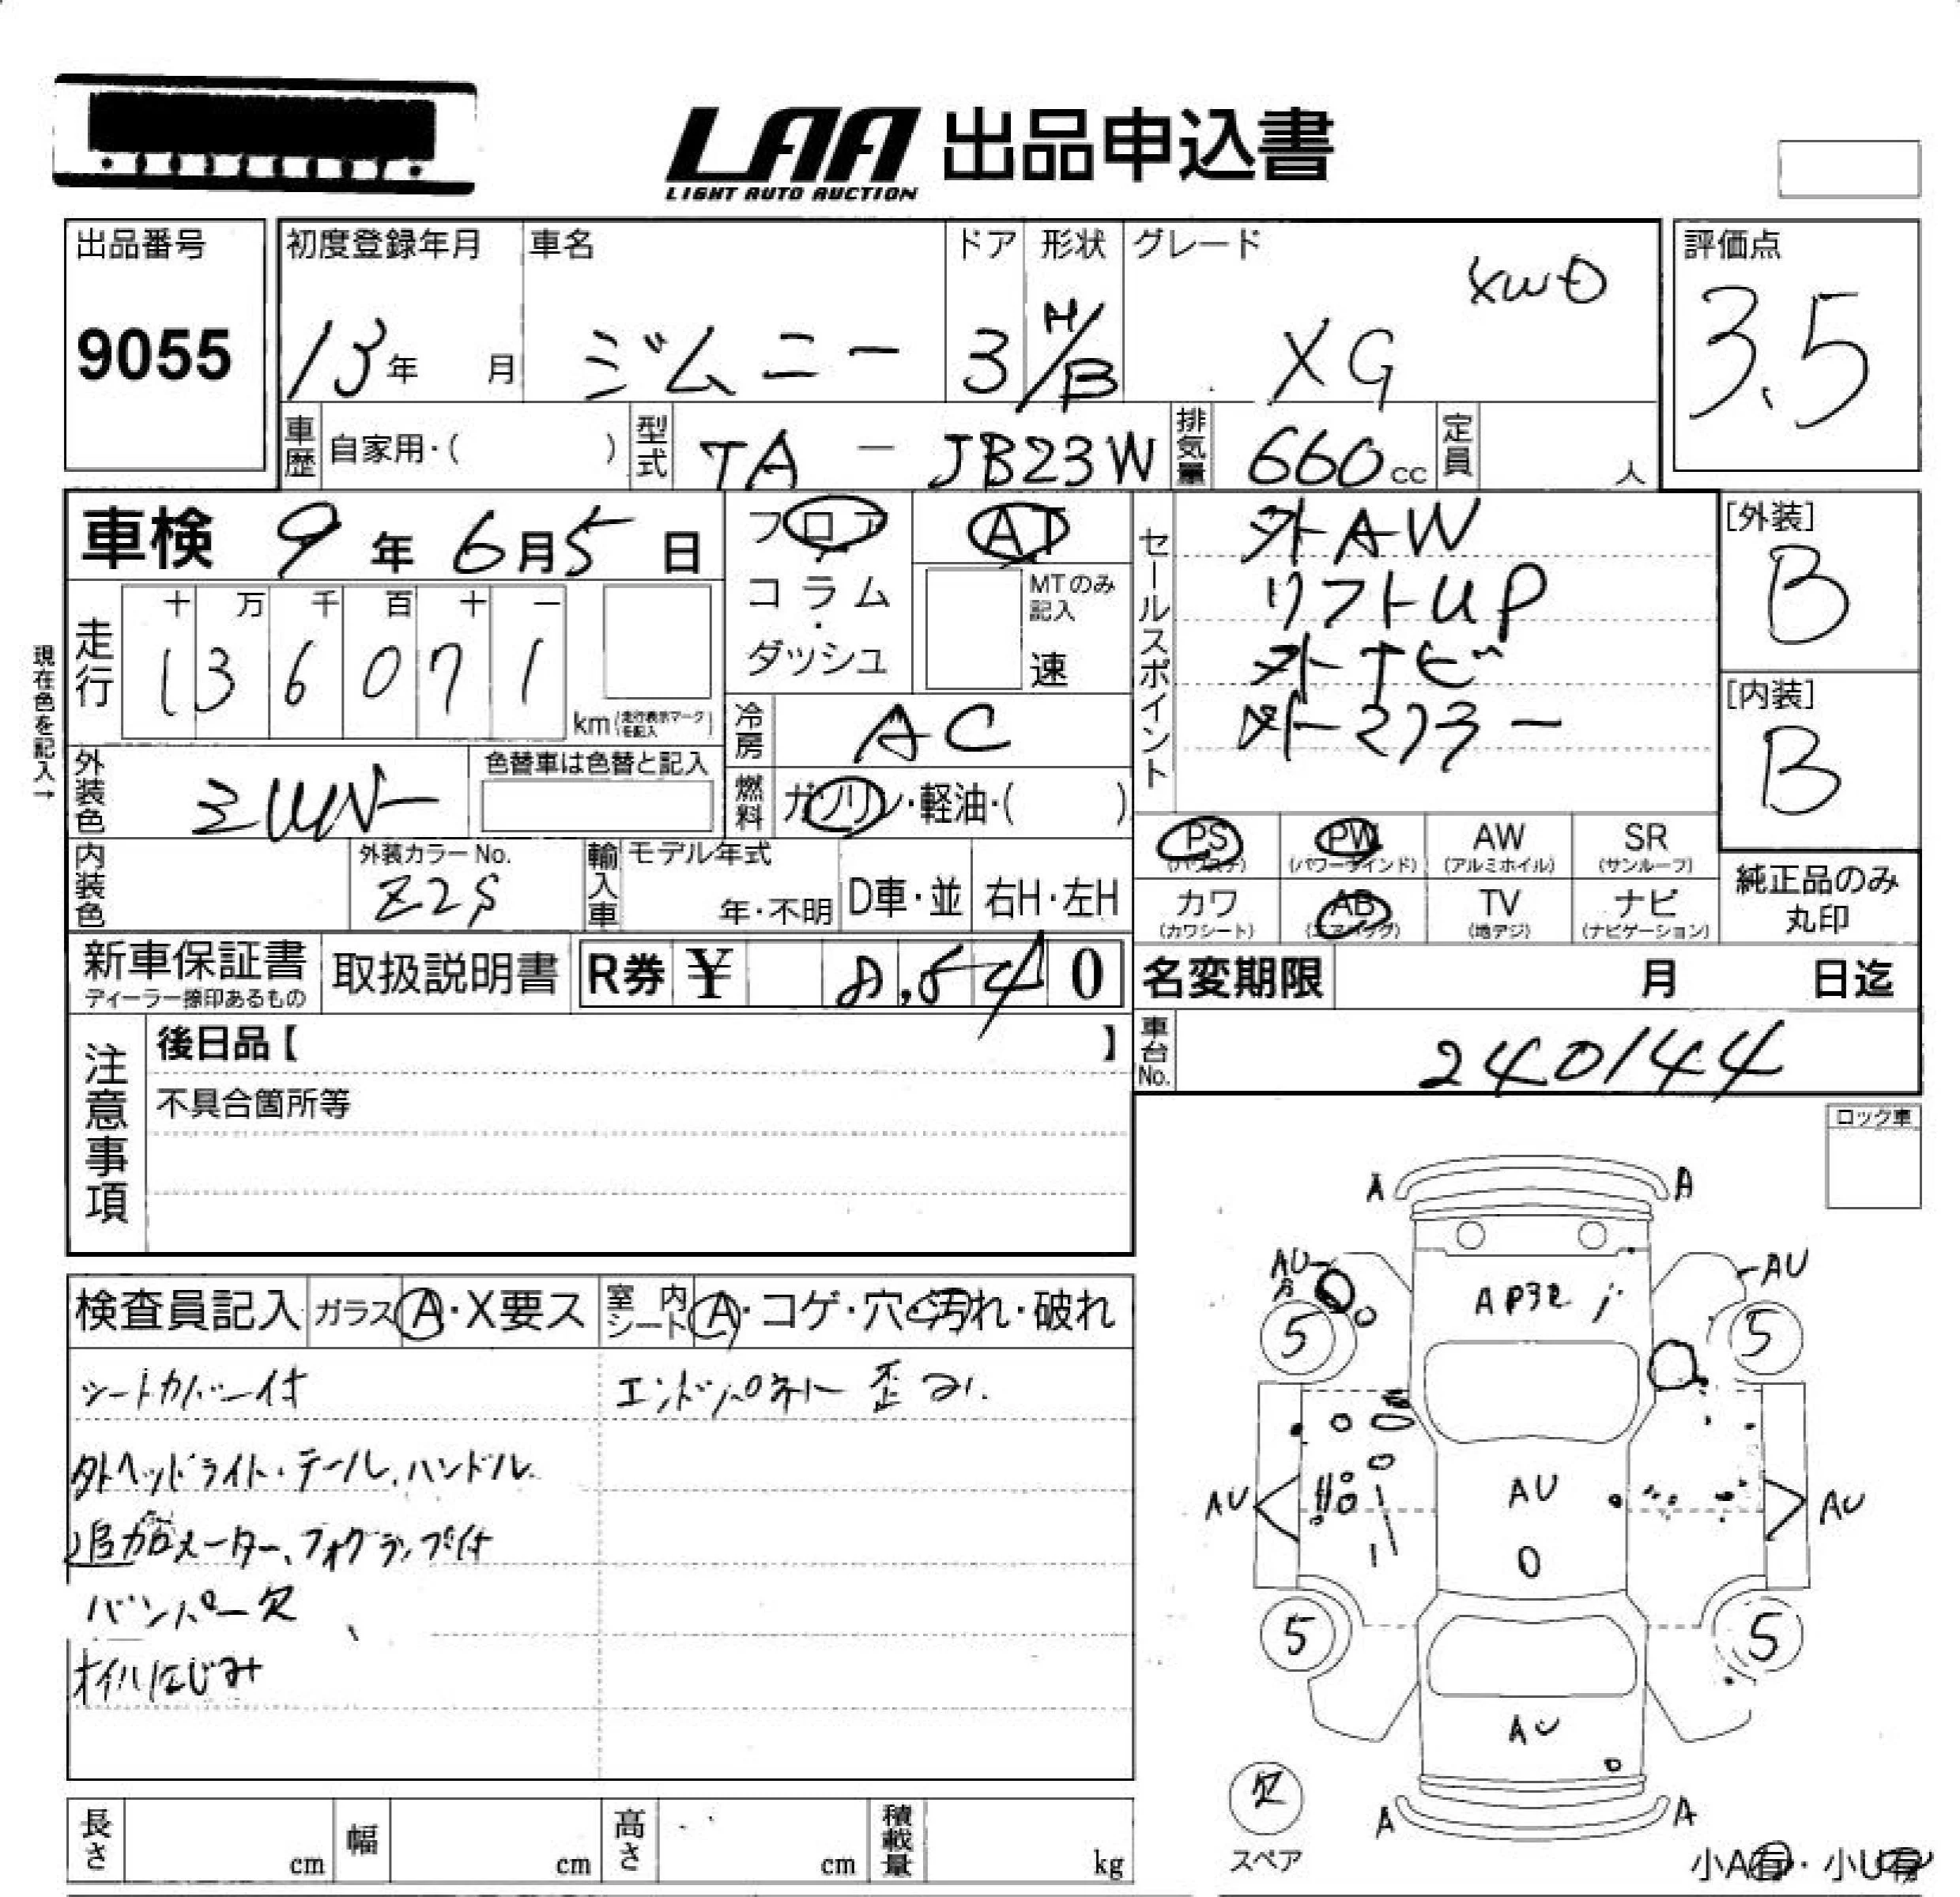 LAA 出品申込書
LIGHT AUTO AUCTION
出品番号
9055
初度登録年月
13年 月
車名
ジムニー
ドア
3
形状
H/B
グレード
XG
4WD
評価点
3.5
車歴 自家用・( )
型式 TA - JB23W
排気量 660cc
定員 人
車検 9年6月5日
フロア・コラム・ダッシュ
AT
MTのみ記入
速
セールスポイント
外AW
リフトUP
外ナビ
外マフラー
[外装]
B
[内装]
B
現在色を記入→
走行
十 万 千 百 十 一
1 3 6 0 7 1
km(走行表示マークを記入)
冷房 AC
外装色 シルバー
色替車は色替と記入
燃料 ガソリン・軽油・( )
内装色
外装カラーNo.
Z2S
輸入車
モデル年式
年・不明
D車・並
右H・左H
PS (パワステ)
PW (パワーウインド)
AW (アルミホイル)
SR (サンルーフ)
カワ (カワシート)
AB (エアバッグ)
TV (地デジ)
ナビ (ナビゲーション)
純正品のみ丸印
新車保証書
ディーラー捺印あるもの
取扱説明書
R券 ¥ 8,540
名変期限 月 日迄
車台No. 240144
注意事項
後日品【 】
不具合箇所等
ロック車
検査員記入
ガラス A・X要ス
室内シート A・コゲ・穴・汚れ・破れ
シートカバー付
エンドパネル 歪み.
外ヘッドライト・テール、ハンドル
追加メーター、フォグランプ付
バンパー欠
オイルにじみ
A A
AU AU
A
AP32
5 5
AU AU AU
5 5
AU
欠
スペア
A A
小A有・小U有
長さ cm
幅 cm
高さ cm
積載量 kg